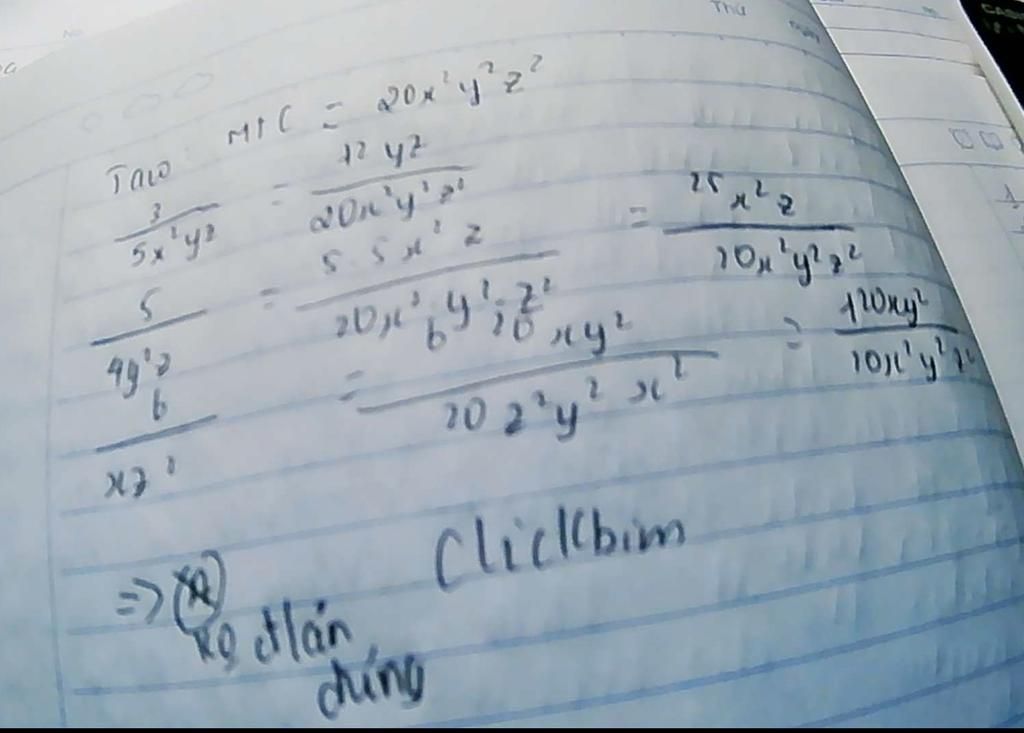 Thứ
MTC = 20x²y²z²
3/5x²yz = 12yz/20x²y²z²
5/4y²z = 5.5x²z/20x²y²z² = 25x²z/20x²y²z²
6/xz² = 6.20xy²/20z²y²x² = 120xy²/20x²y²z²
Clickbim
=>
đán
đúng